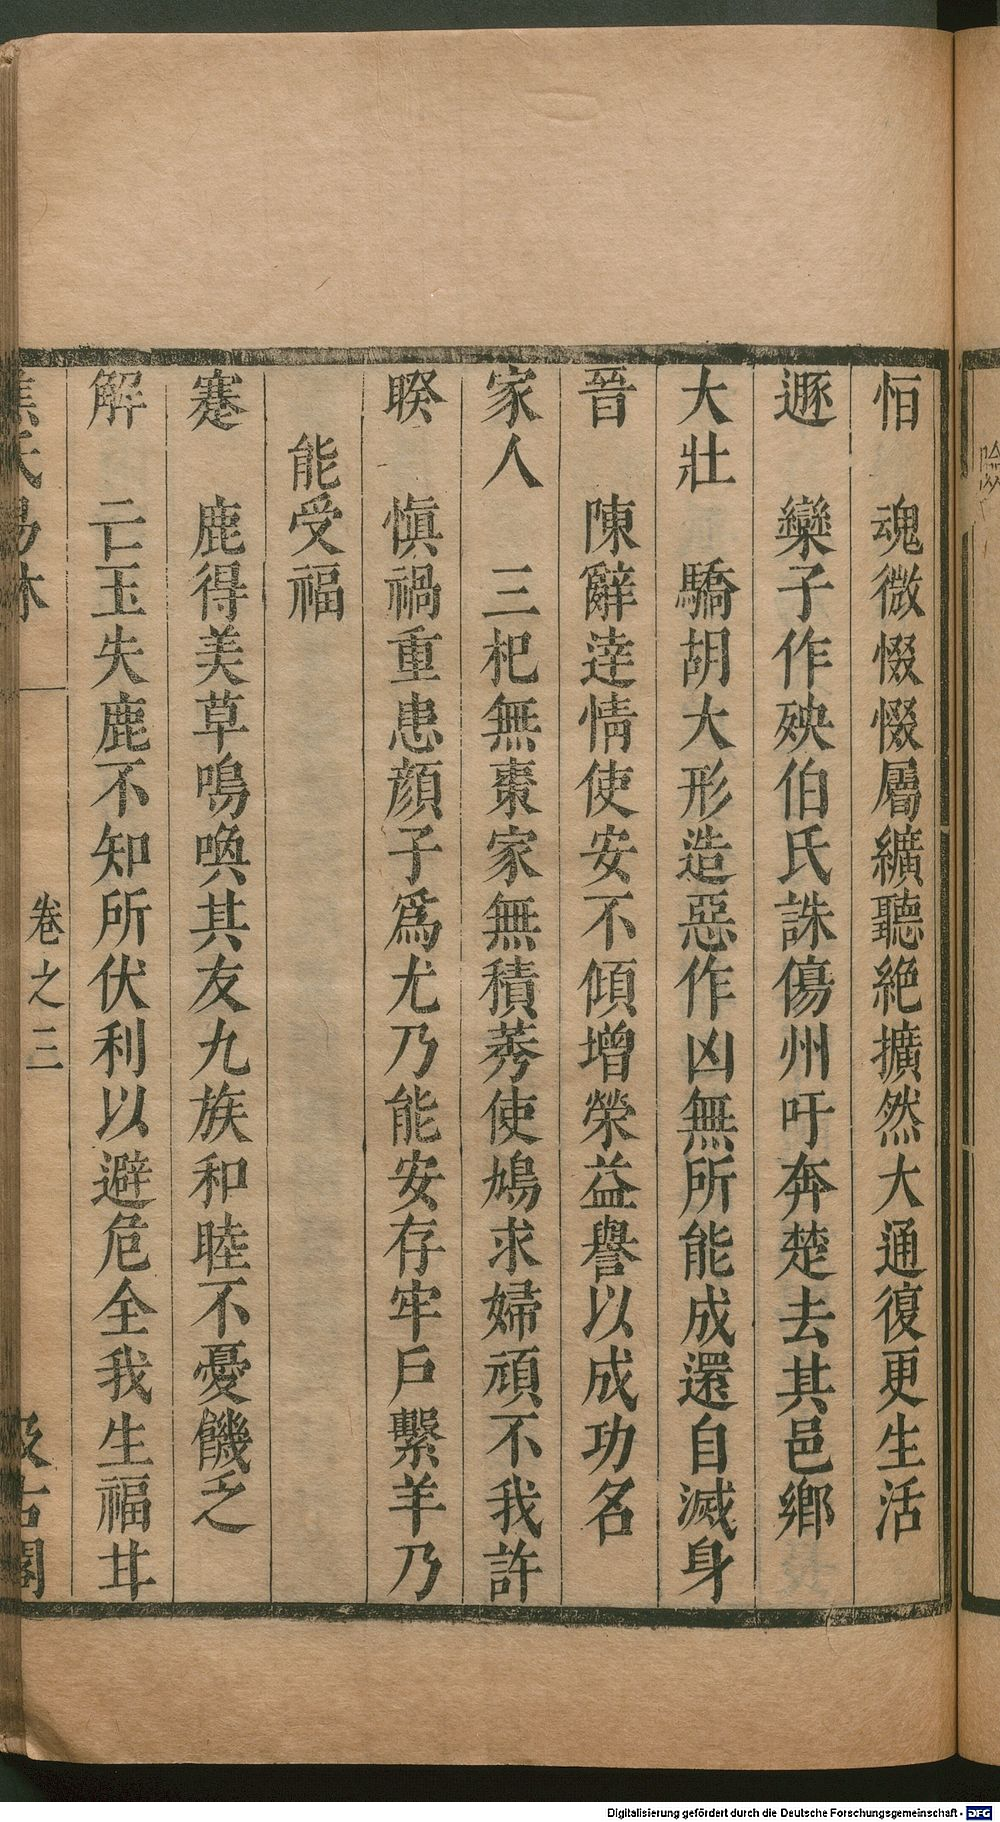 恒　魂微惙惙屬纊聽絶擴然大通復更生活
遯　欒子作殃伯氏誅傷州吁奔楚去其邑鄉
大壯　驕胡大形造惡作凶無所能成還自滅身
晉　陳辭達情使安不傾增榮益譽以成功名
家人　三杞無棗家無積莠使鳩求婦頑不我許
睽　愼禍重患顏子爲尤乃能安存牢戶繫羊乃
能受福
蹇　鹿得美草鳴喚其友九族和睦不憂饑乏
解　亡玉失鹿不知所伏利以避危全我生福廿
焦氏易林　卷之三　汲古閣
Digitalisierung gefördert durch die Deutsche Forschungsgemeinschaft - DFG